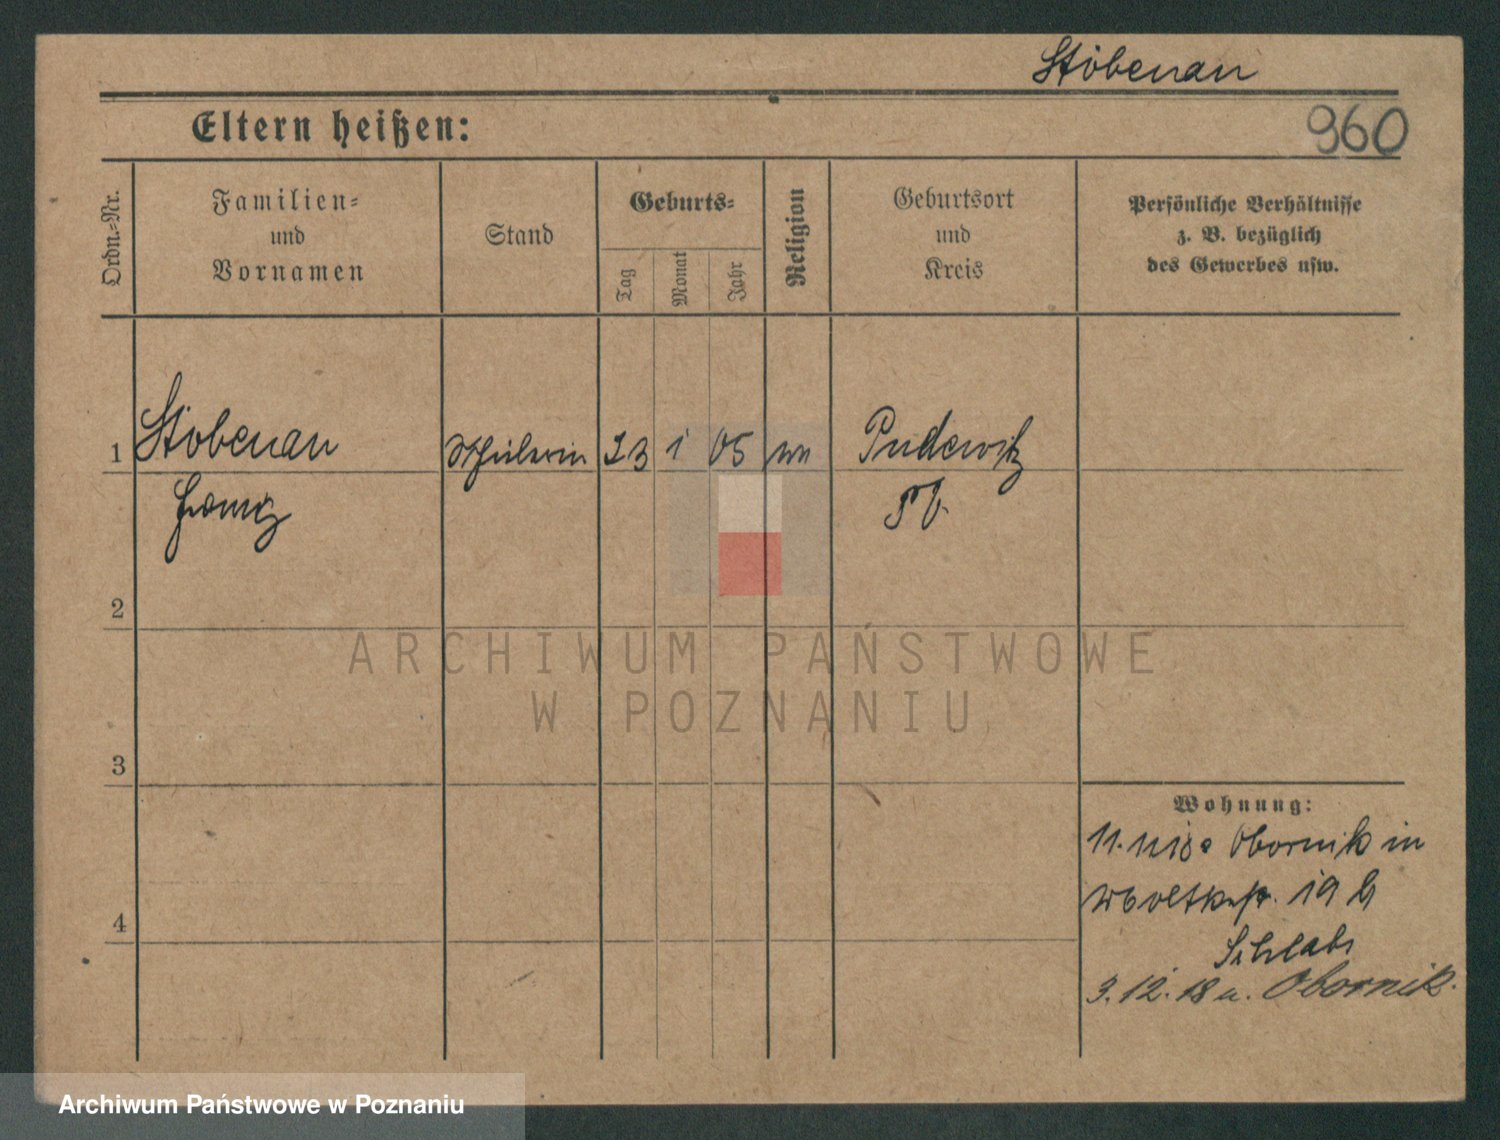 Stöbenau
960
Eltern heißen:
Ordn.-Nr.
Familien-
und
Vornamen
Stand
Geburts-
Tag
Monat
Jahr
Religion
Geburtsort
und
Kreis
Persönliche Verhältnisse
z. B. bezüglich
des Gewerbes usw.
1 Stöbenau Schülerin 23 1 05 Pudewitz
2
3
4
Wohnung:
11. Obornik in
19
3.12.18 Obornik.
ARCHIWUM PAŃSTWOWE
W POZNANIU
Archiwum Państwowe w Poznaniu